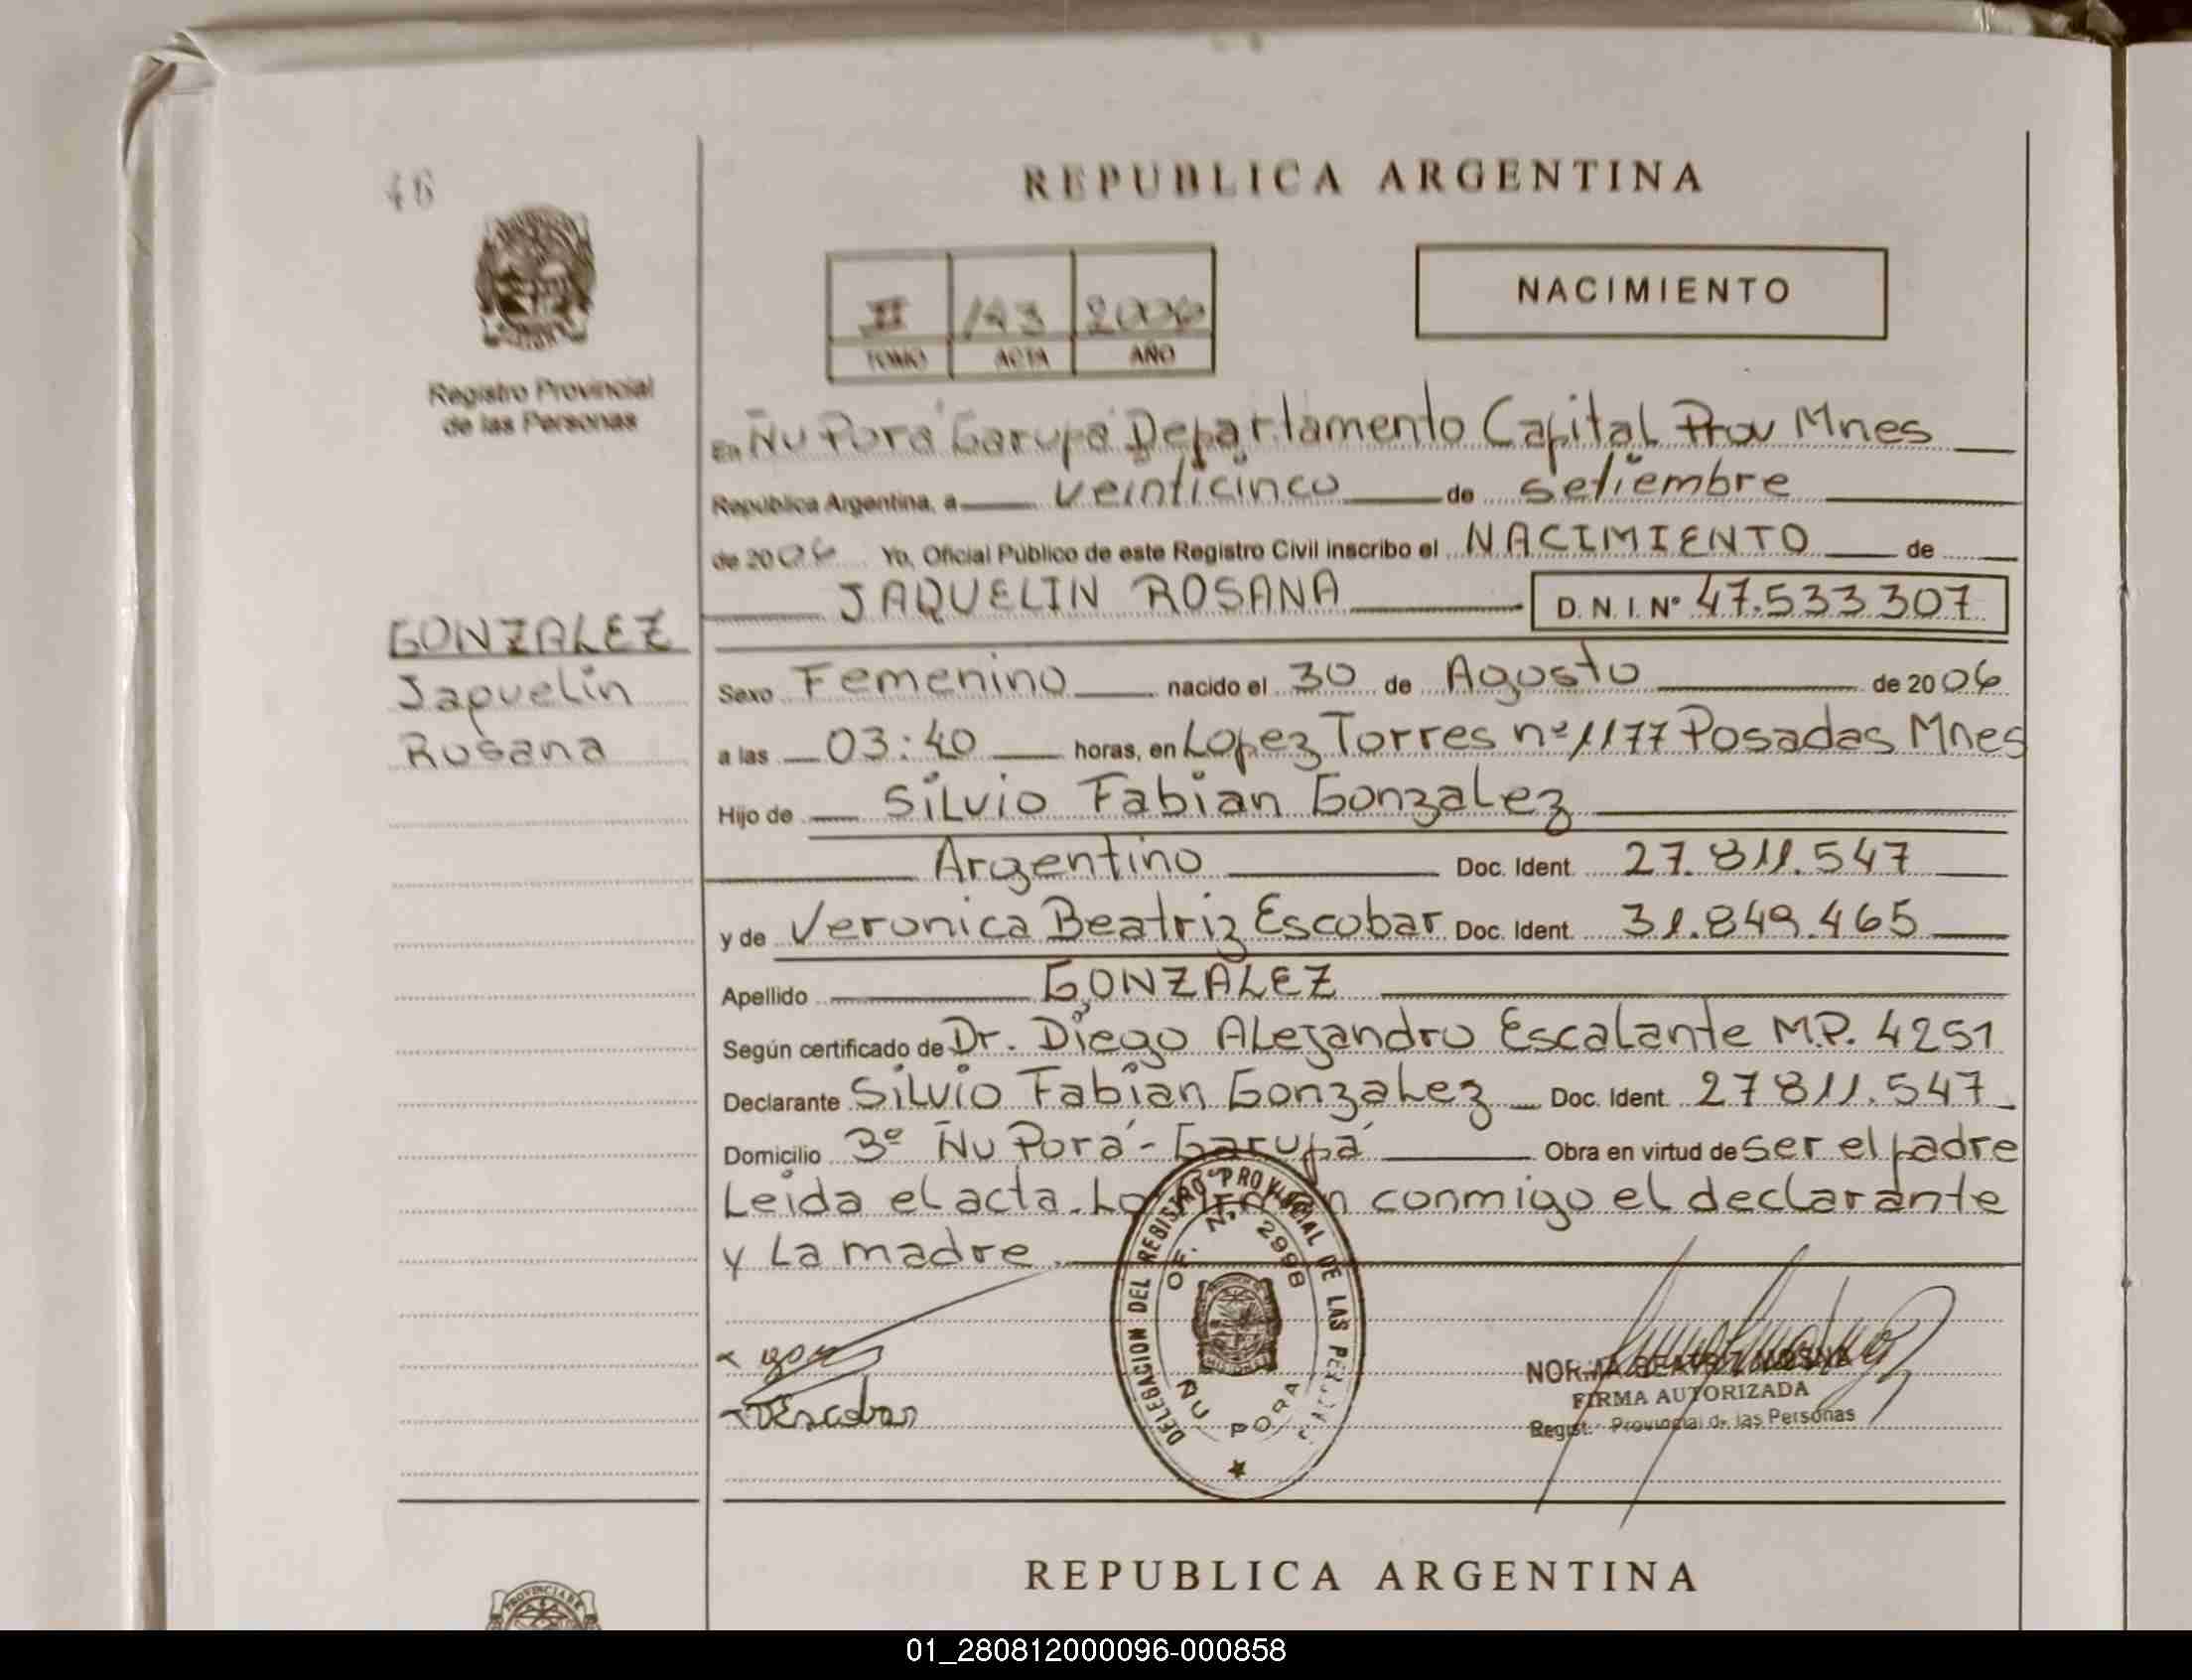 46
REPUBLICA ARGENTINA
II 143 2006
TOMO ACTA AÑO
NACIMIENTO
Registro Provincial
de las Personas
En Ñu Porá Garupá Departamento Capital Prov Mnes
República Argentina, a veinticinco de setiembre
de 2006 Yo, Oficial Público de este Registro Civil inscribo el NACIMIENTO de
JAQUELIN ROSANA D. N. I. Nº 47.533307
GONZALEZ
Jaquelin
Rosana
Sexo Femenino nacido el 30 de Agosto de 2006
a las 03:40 horas, en Lopez Torres nº 1177 Posadas Mnes
Hijo de Silvio Fabian Gonzalez
Argentino Doc. Ident. 27.811.547
y de Veronica Beatriz Escobar Doc. Ident. 31.849.465
Apellido GONZALEZ
Según certificado de Dr. Diego Alejandro Escalante M.P. 4251
Declarante Silvio Fabian Gonzalez Doc. Ident. 27811.547
Domicilio 3º Ñu Porá - Garupá Obra en virtud de ser el padre
Leida el acta. Lo firman conmigo el declarante
y La madre.
DELEGACION DEL REGISTRO PROVINCIAL DE LAS
OF. Nº 2998
ÑU PORA
Escobar
NORMA BEATRIZ
FIRMA AUTORIZADA
Regist. Provincial de las Personas
REPUBLICA ARGENTINA
01_280812000096-000858